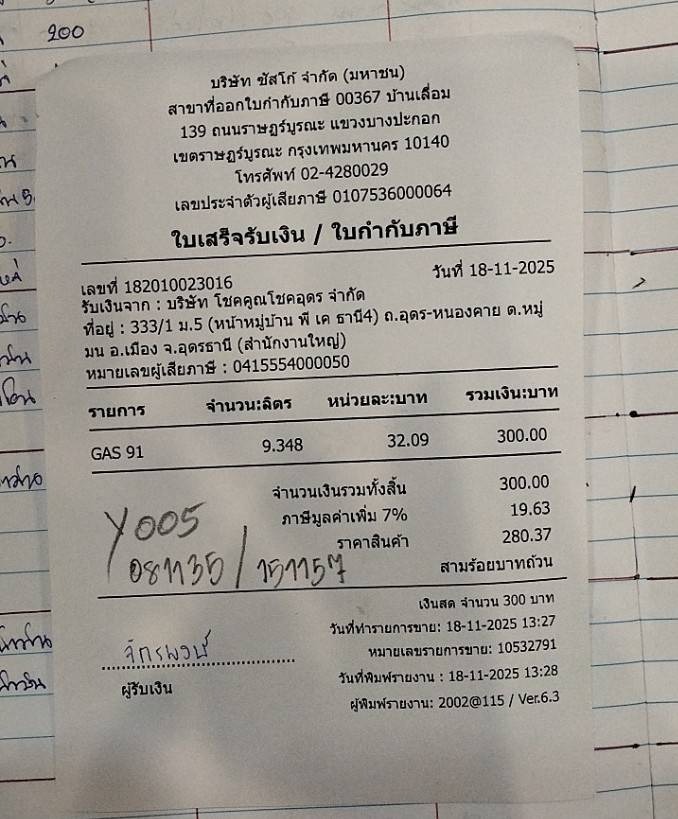 200
บริษัท ซัสโก้ จำกัด (มหาชน)
สาขาที่ออกใบกำกับภาษี 00367 บ้านเลื่อม
139 ถนนราษฎร์บูรณะ แขวงบางปะกอก
เขตราษฎร์บูรณะ กรุงเทพมหานคร 10140
โทรศัพท์ 02-4280029
เลขประจำตัวผู้เสียภาษี 0107536000064
ใบเสร็จรับเงิน / ใบกำกับภาษี
เลขที่ 182010023016 วันที่ 18-11-2025
รับเงินจาก : บริษัท โชคคูณโชคอุดร จำกัด
ที่อยู่ : 333/1 ม.5 (หน้าหมู่บ้าน พี เค ธานี4) ถ.อุดร-หนองคาย ต.หมู่
มน อ.เมือง จ.อุดรธานี (สำนักงานใหญ่)
หมายเลขผู้เสียภาษี : 0415554000050
รายการ จำนวน:ลิตร หน่วยละ:บาท รวมเงิน:บาท
GAS 91 9.348 32.09 300.00
จำนวนเงินรวมทั้งสิ้น 300.00
ภาษีมูลค่าเพิ่ม 7% 19.63
ราคาสินค้า 280.37
สามร้อยบาทถ้วน
Y005
081135/151157
เงินสด จำนวน 300 บาท
วันที่ทำรายการขาย: 18-11-2025 13:27
หมายเลขรายการขาย: 10532791
วันที่พิมพ์รายงาน : 18-11-2025 13:28
ผู้พิมพ์รายงาน: 2002@115 / Ver.6.3
จักรพงษ์
ผู้รับเงิน